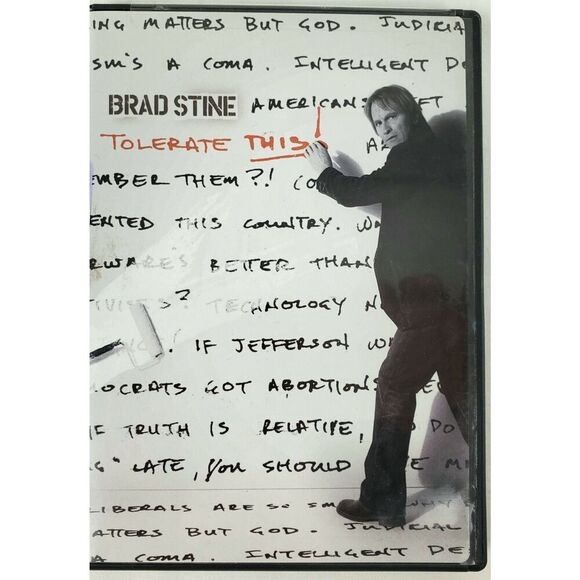 ING MATTERS BUT GOD. JUDICIA
ISM'S A COMA. INTELLIGENT DE
BRAD STINE AMERICANS
TOLERATE THIS!
EMBER THEM?!
ENTED THIS COUNTRY.
BETTER THAN
TECHNOLOGY
! IF JEFFERSON
MOCRATS GOT ABORTIONS
IF TRUTH IS RELATIVE, DO
" LATE, YOU SHOULD
LIBERALS ARE SO
MATTERS BUT GOD. JUDICIAL
A COMA. INTELLIGENT DE